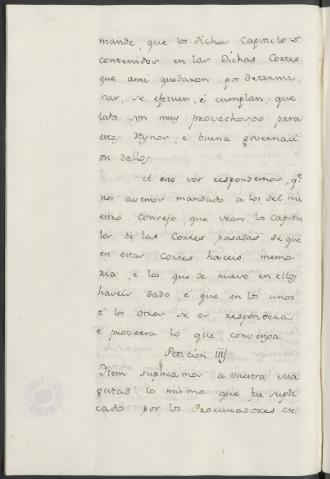 mande, que los dichos Capitulos
contenidos en las dichas Cortes
que ami quedaron por determi
nar, se efetuen, é cumplan, que
todo son muy provechosos para
estos Reynos, é buena governaci
on dellos.
A esto vos respondemos, qe
nos avemos mandado a los del nu
estro Consejo, que vean los Capitu
los de las Cortes pasadas de que
en estas Cortes haceis memo
ria, e los que de nuevo en ellos
haveis dado, e que en los unos
é los otros se os respondera
é proveera lo que convenga.
Peticion IIIJ.
Item suplicamos a vuestra Ma
gestad lo mismo que fue supli
cado por los Procuradores de